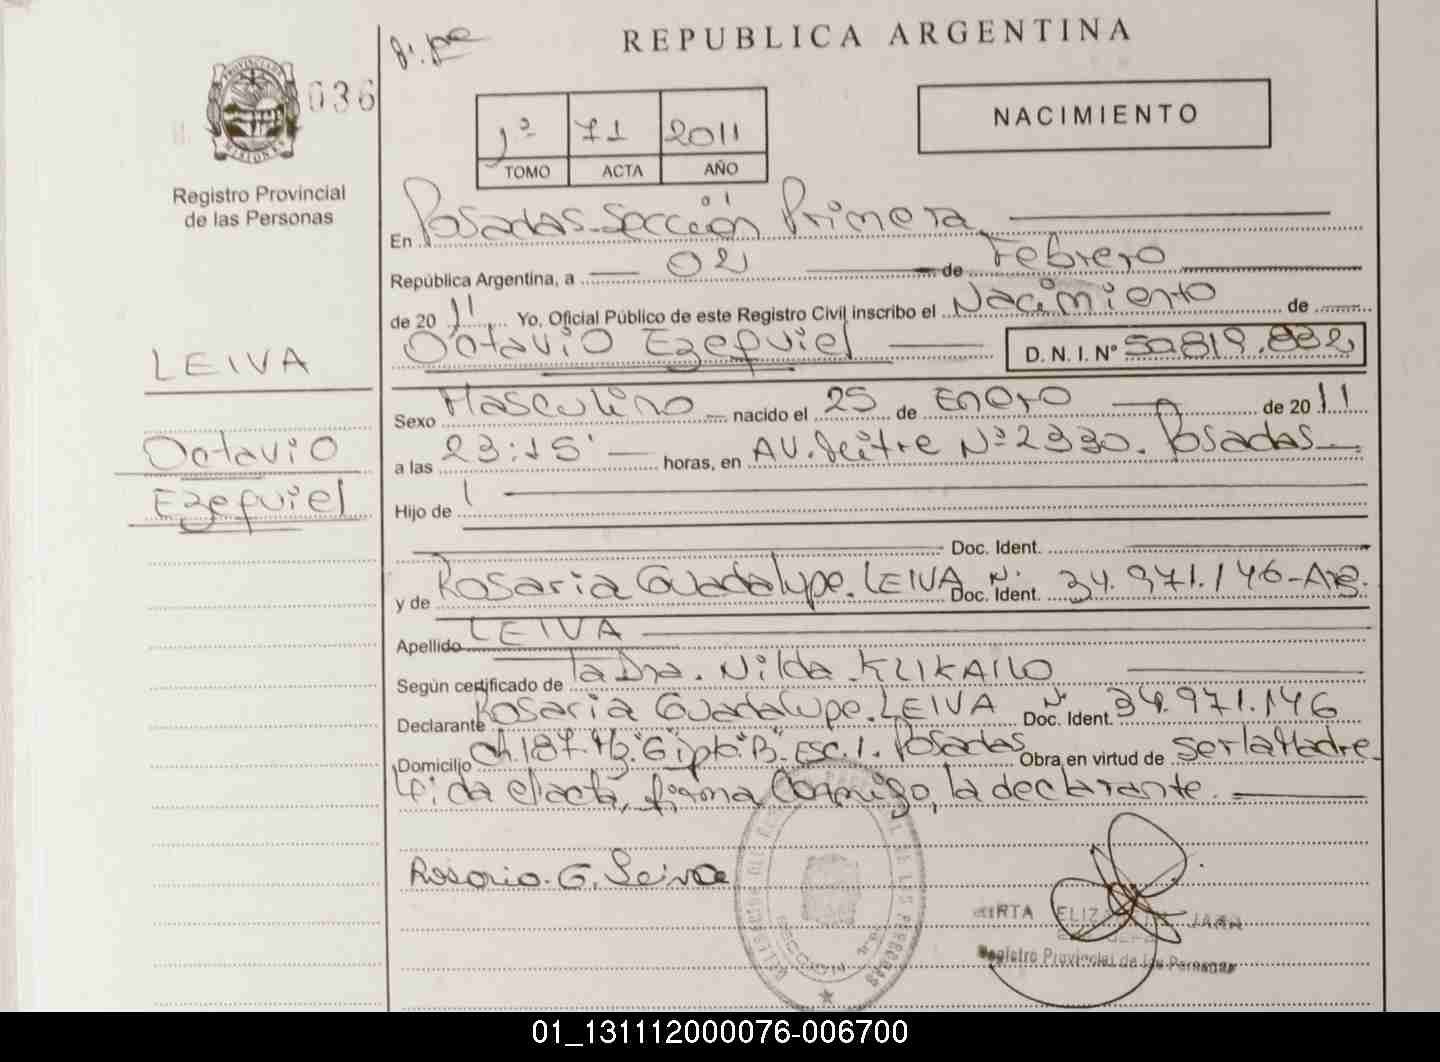 REPUBLICA ARGENTINA
036
PROVINCIA DE MISIONES
Registro Provincial
de las Personas
NACIMIENTO
1º 71 2011
TOMO ACTA AÑO
En Posadas-Sección Primera
República Argentina, a 02 de Febrero
de 2011 Yo, Oficial Público de este Registro Civil inscribo el Nacimiento de
Octavio Ezequiel D. N. I. Nº 50.819.832
LEIVA
Octavio
Ezequiel
Sexo Masculino nacido el 25 de Enero de 2011
a las 23:15' horas, en AV. Mitre Nº 2330. Posadas
Hijo de
Doc. Ident.
y de Rosaria Guadalupe. LEIVA Doc. Ident. Nº 34.971.146-Arg.
Apellido LEIVA
Según certificado de la Dra. Nilda KLIKAILO
Declarante Rosaria Guadalupe. LEIVA Doc. Ident. Nº 34.971.146
Domicilio Ch. 187. Mz. "G" Dpto. "B". Esc. 1. Posadas Obra en virtud de ser la Madre
Leída el acta, firma conmigo, la declarante.
Rosario. G. Leiva
SECCION 1ra
MIRTA ELIZABETH JARA
Registro Provincial de las Personas
01_131112000076-006700